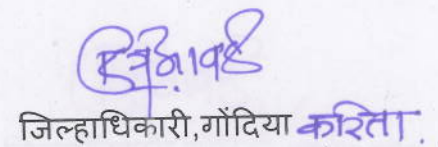 जिल्हाधिकारी,गोंदिया करिता.